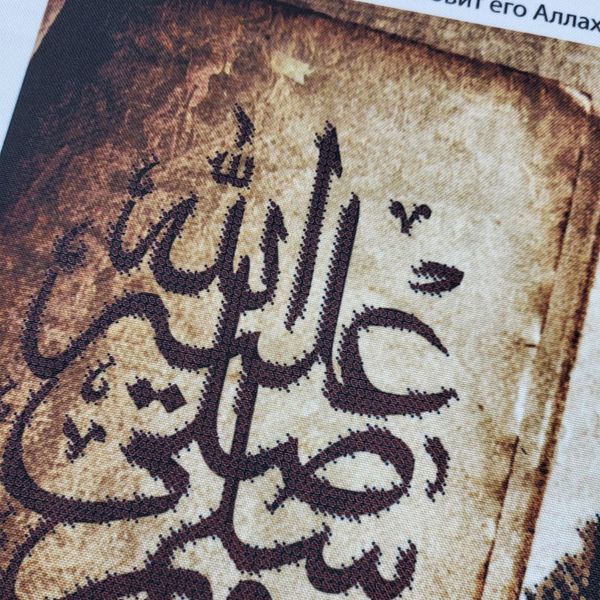 овит его Аллах
صلى الله عليه وسلم